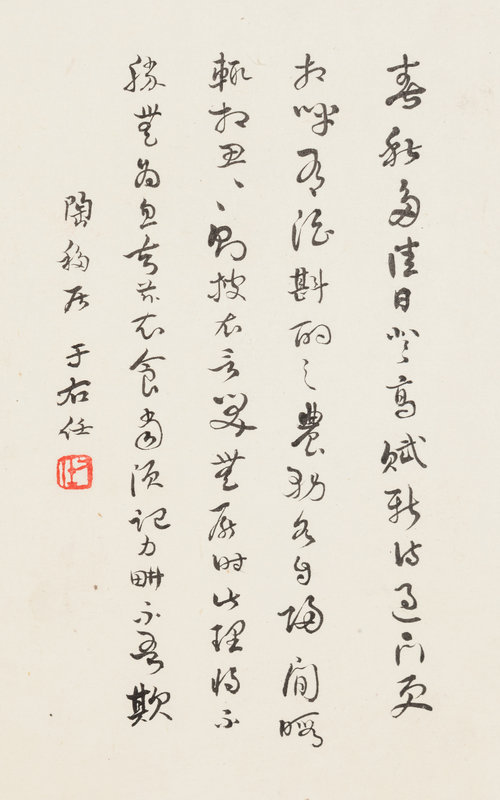 春秋多佳日登高賦新詩過門更
相呼有酒斟酌之農務各自歸閒暇
輒相思、、則披衣言笑無厭時此理將不
勝無為忽去茲衣食當須記力畊不吾欺
陶移居 于右任
右任